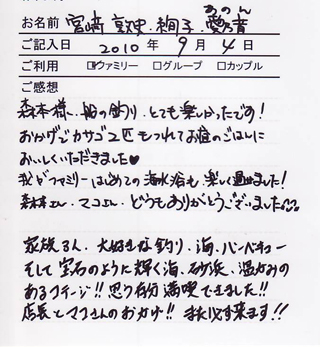 あのん
お名前 宮崎 敦史・絢子・愛音
ご記入日 2010年 9月 4日
ご利用 ☑ファミリー □グループ □カップル
ご感想
森本様、船の釣り、とても楽しかったです!
おかげでカサゴ2匹もつれてお昼のごはんに
おいしくいただきました♥
我がファミリーはじめての海水浴も楽しく過せました!
森本さん、マコさん、どうもありがとうございました
家族3人、大好きな釣り、海、バーベキュー
そして宝石のように輝く海、砂浜、温かみの
あるコテージ!!思う存分満喫できました!!
店長とマコさんのおかげ!!また必ず来ます!!